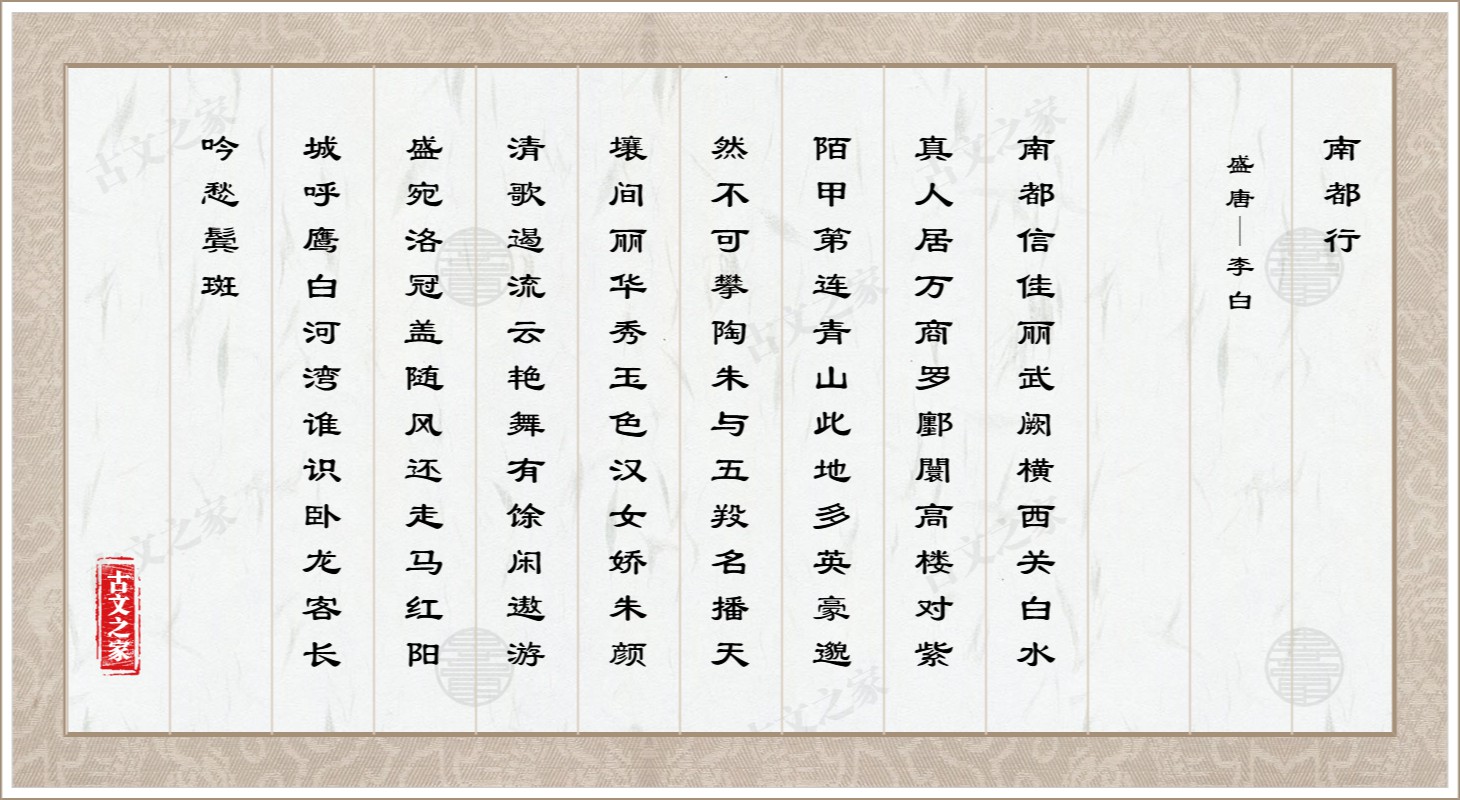 南都行
盛唐—李白
南都信佳丽武阙横西关白水
真人居万商罗鄽闤高楼对紫
陌甲第连青山此地多英豪邈
然不可攀陶朱与五羖名播天
壤间丽华秀玉色汉女娇朱颜
清歌遏流云艳舞有馀闲遨游
盛宛洛冠盖随风还走马红阳
城呼鹰白河湾谁识卧龙客长
吟愁鬓斑
古文之家
古文之家
古文之家
古文之家
古文之家
古文之家
古文之家